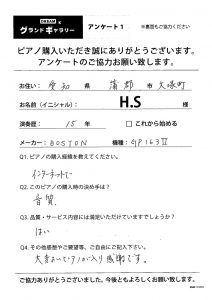 DREAM ×
グランドギャラリー アンケート1 ※裏面もご協力ください
ピアノ購入いただき誠にありがとうございます。
アンケートのご協力お願い致します。
お住い： 愛知 県 蒲郡 市 大塚町
お名前（イニシャル）： H.S 様
演奏歴： 15 年 □ これから始める
メーカー： BOSTON 機種： GP163Ⅱ
Q1. ピアノの購入経緯を教えてください。
インターネットで
Q2. このピアノ購入時の決め手は？
音質
Q3. 品質・サービス内容には満足いただけていますでしょうか？
はい
Q4. その他感想やご要望等、ご自由にご記入下さい。
ピアノが入り感謝です。
ご協力ありがとうございました。今後ともよろしくお願い致します。